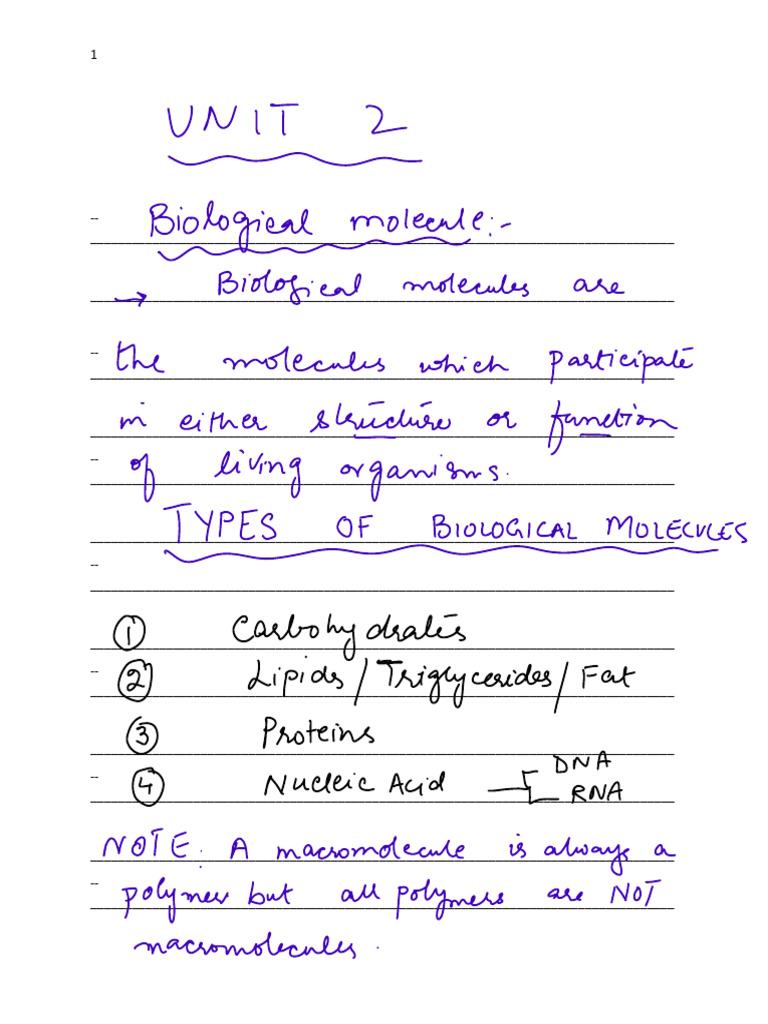 1
UNIT 2
Biological molecule:-
→ Biological molecules are
the molecules which participate
in either structure or function
of living organisms.
TYPES OF BIOLOGICAL MOLECULES
① Carbohydrates
② Lipids/Triglycerides/Fat
③ Proteins
DNA
④ Nucleic Acid
RNA
NOTE: A macromolecule is always a
polymer but all polymers are NOT
macromolecules.